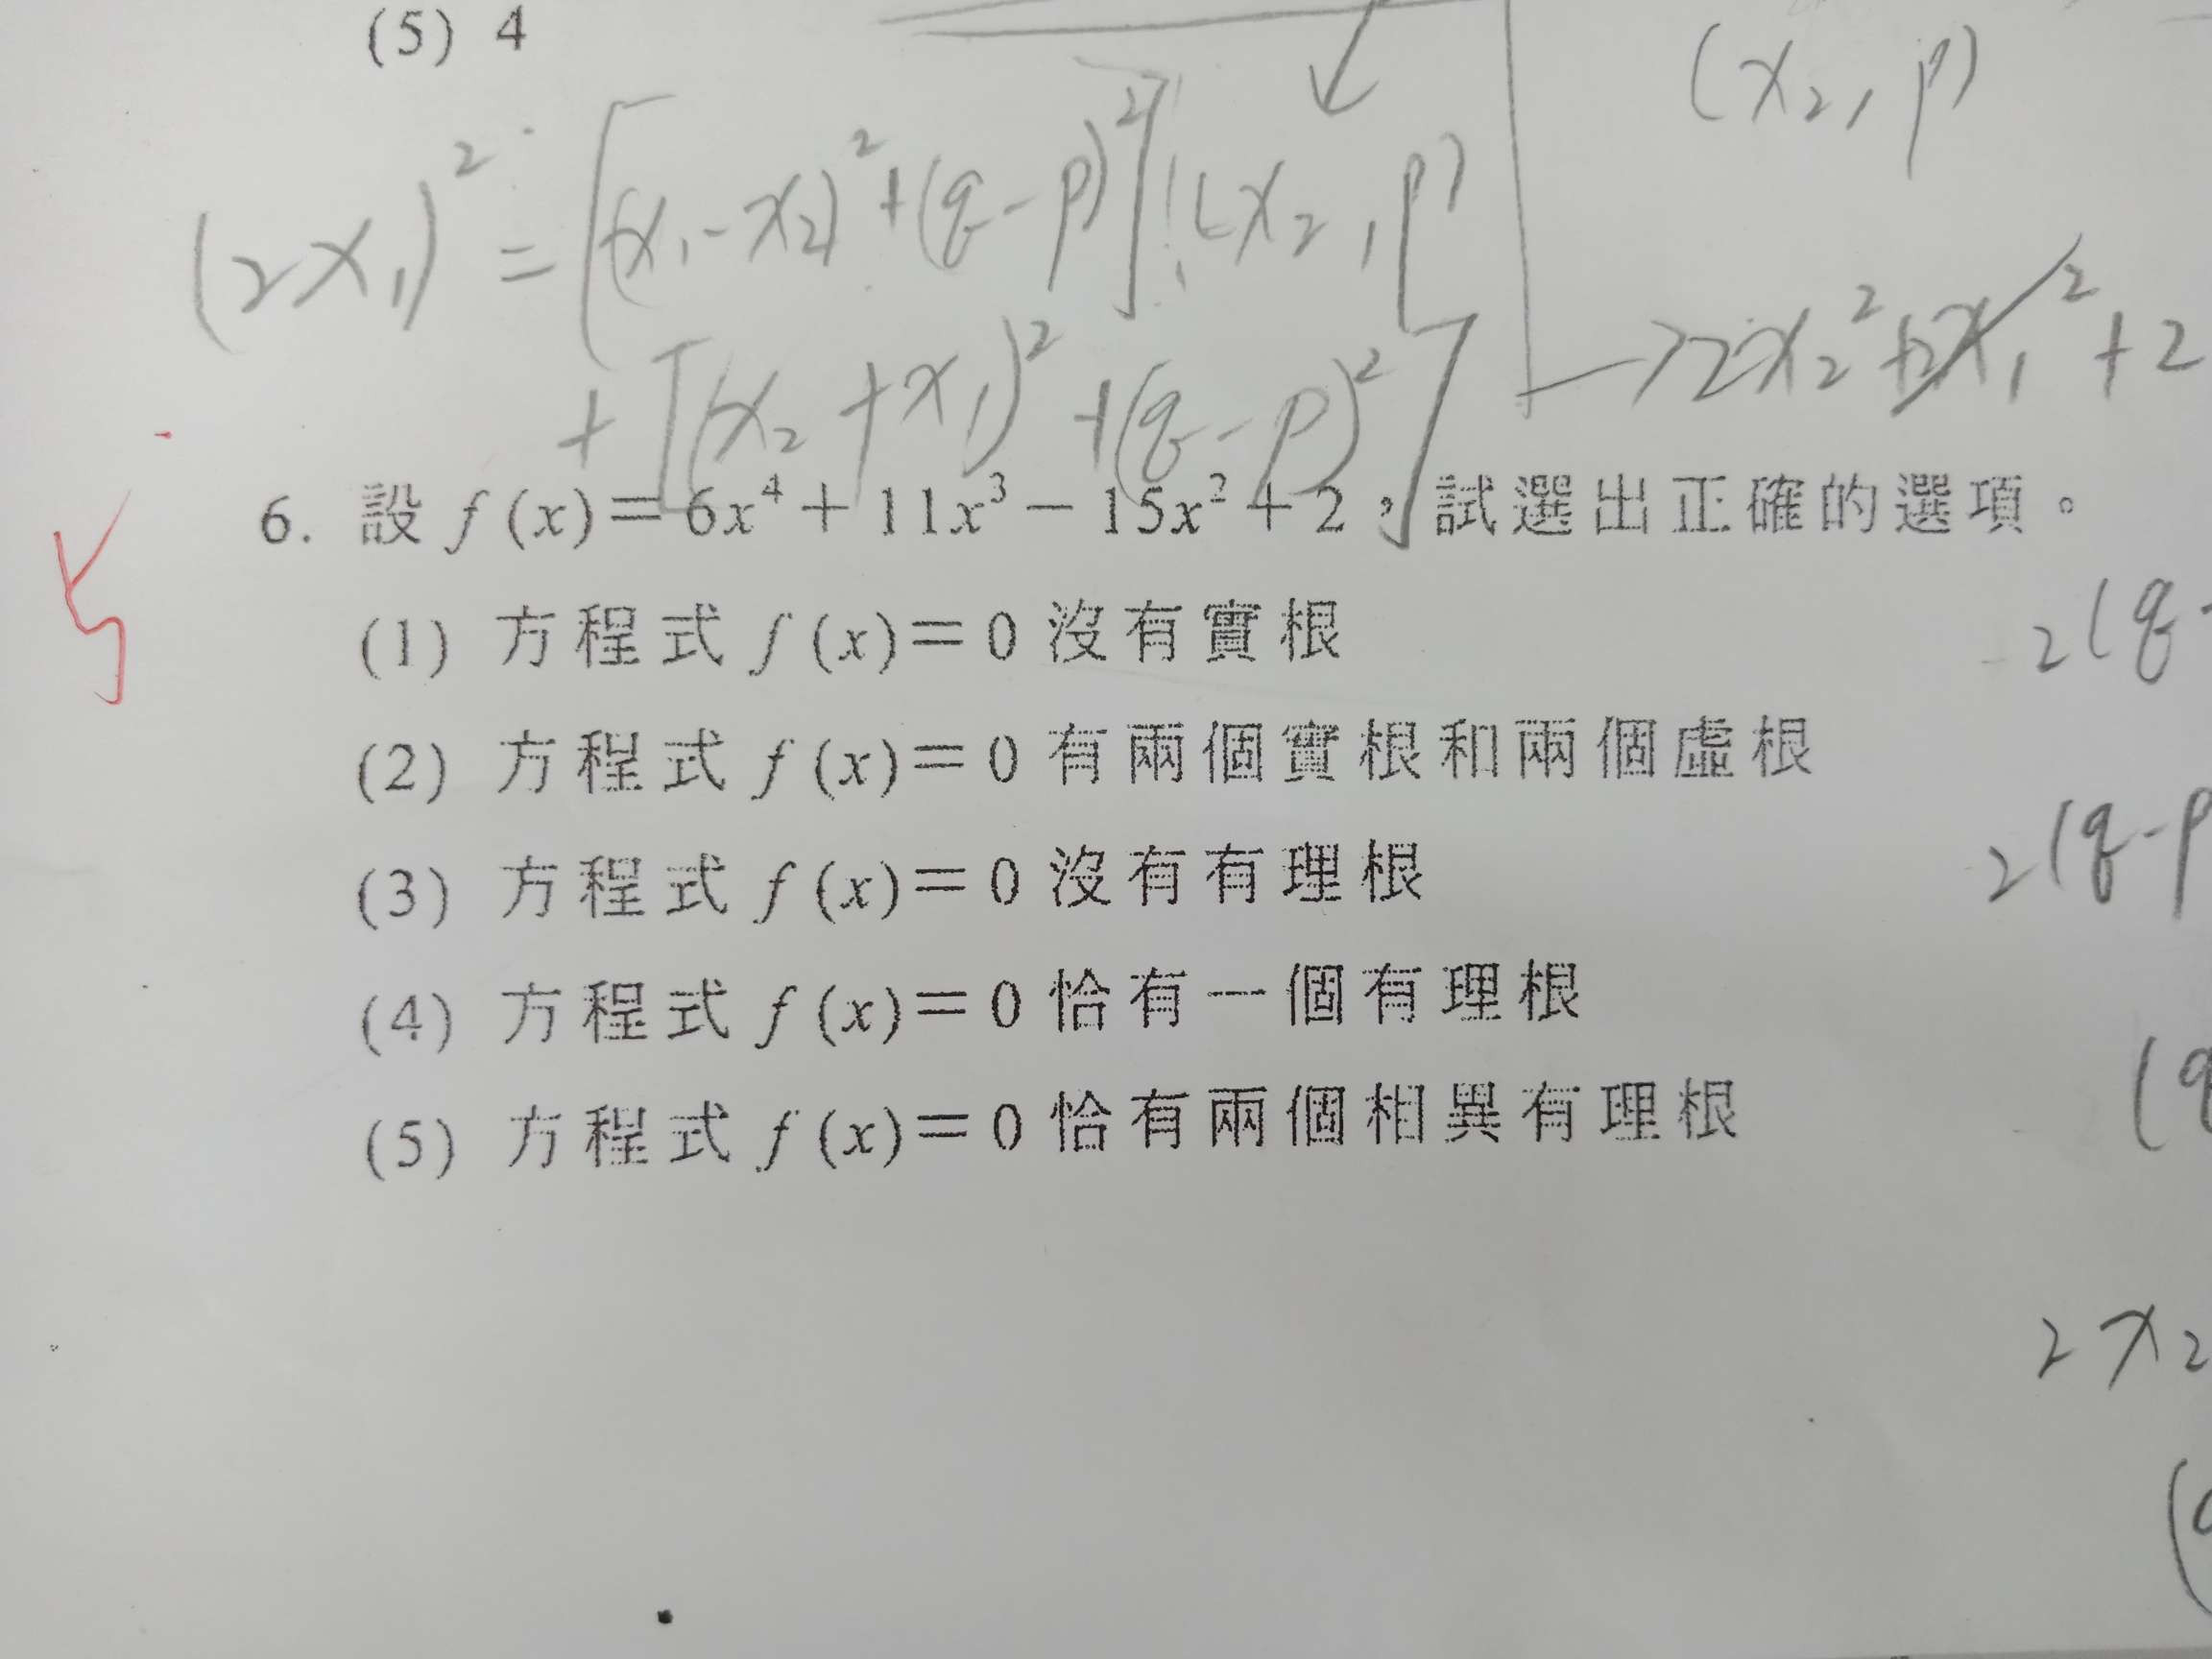 (5) 4
(x₂, p)
(2x₁)² = [(x₁-x₂)² + (q-p)²] (x₂, p)
+ [(x₂+x₁)² + (q-p)²] → 2x₂² + 2x₁² + 2
6. 設 f(x)= 6x⁴ + 11x³ − 15x² + 2，試選出正確的選項。
(1) 方程式 f(x)= 0 沒有實根
2(q-
(2) 方程式 f(x)= 0 有兩個實根和兩個虛根
2(q-p
(3) 方程式 f(x)= 0 沒有有理根
(4) 方程式 f(x)= 0 恰有一個有理根
(q
(5) 方程式 f(x)= 0 恰有兩個相異有理根
2x₂